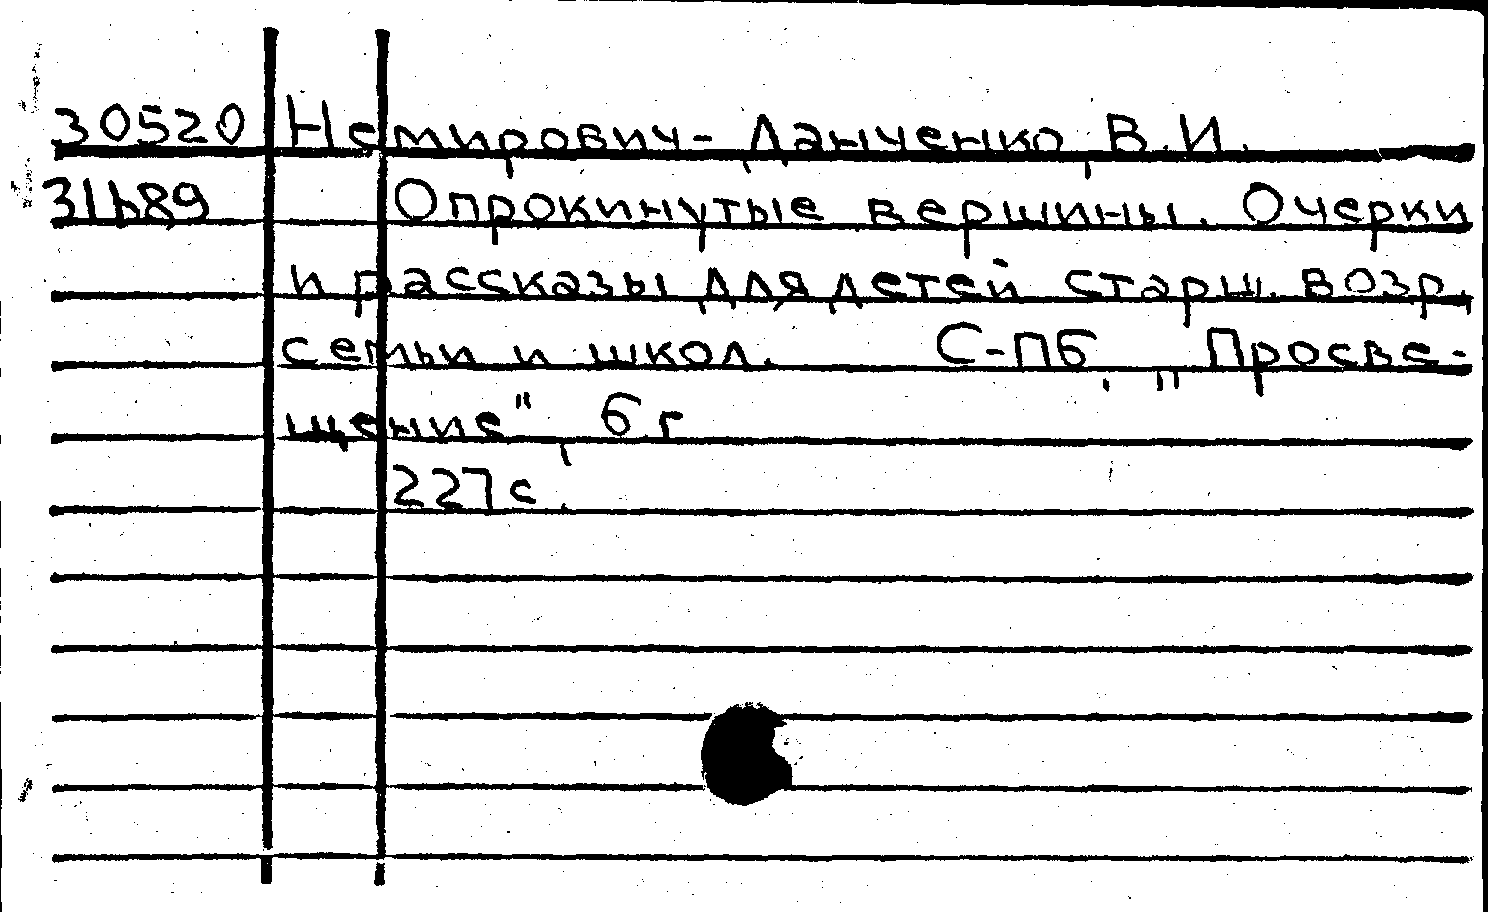 30520 Немирович-Данченко, В.И.
31689 Опрокинутые вершины. Очерки
и рассказы для детей старш. возр.,
семьи и школ. С-Пб, „Просве-
щение", б.г
227с.